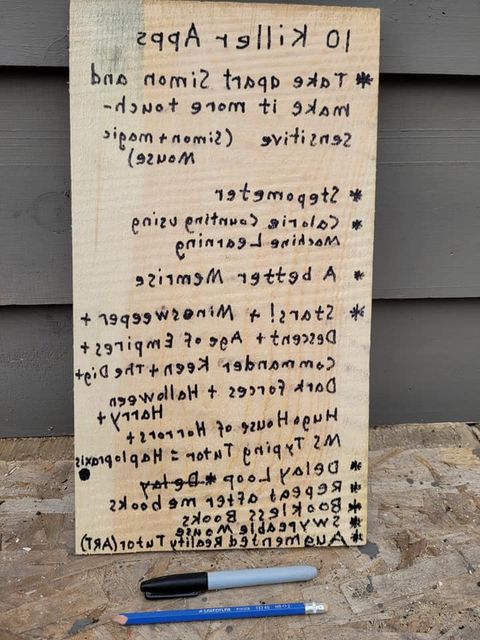 10 Killer Apps
* Take apart Simon and
make it more touch-
sensitive (Simon + magic
Mouse)
* Stepometer
* Calorie Counting using
Machine Learning
* A better Memrise
* Stars! + Minesweeper +
Descent + Age of Empires +
Commander Keen + The Dig +
Dark Forces + Halloween
Harry +
Hugo House of Horrors +
MS Typing Tutor = Haplopraxis
* Delay Loop * Delay
* Repeat after me books
* Bookless Books
* Swypeable Mouse
* Augmented Reality Tutor (ART)
STAEDTLER